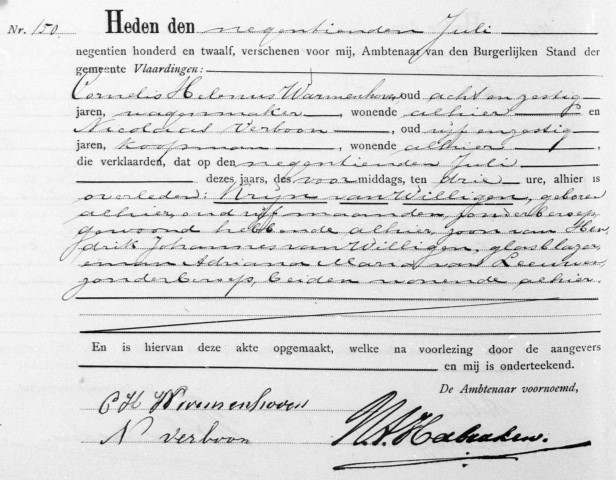 Nr. 150. Heden den negentienden Juli
negentien honderd en twaalf, verschenen voor mij, Ambtenaar van den Burgerlijken Stand der
gemeente Vlaardingen:
Cornelis Helenus Warmenhoven, oud acht en zestig
jaren, wagenmaker, wonende alhier en
Nicolaas Verboon, oud vijf en zestig
jaren, koopman, wonende alhier,
die verklaarden, dat op den negentienden Juli
dezes jaars, des voormiddags, ten drie ure, alhier is
overleden: Krijn van Willigen, geboren
alhier, oud vijf maanden, zonder beroep,
gewoond hebbende alhier, zoon van Hen
drik Johannes van Willigen, glasblazer,
en van Adriana Maria van Leeuwen,
zonder beroep, beiden wonende alhier.
En is hiervan deze akte opgemaakt, welke na voorlezing door de aangevers
en mij is onderteekend.
De Ambtenaar voornoemd,
C H Warmenhoven
N Verboon